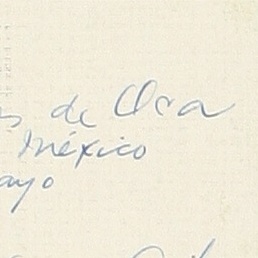 s de Oca
México
ayo